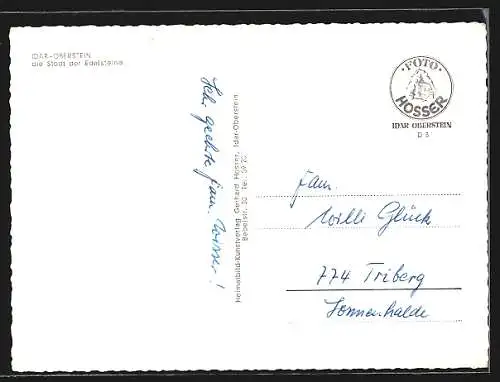 IDAR-OBERSTEIN
die Stadt der Edelsteine
· FOTO ·
HOSSER
IDAR OBERSTEIN
D 5
Sehr geehrte Fam.
Heimatbild-Kunstverlag Gerhard Hosser, Idar-Oberstein
Bebelstr. 30 Tel. 39 23
Fam.
Willi Glück
774 Triberg
Sonnenhalde